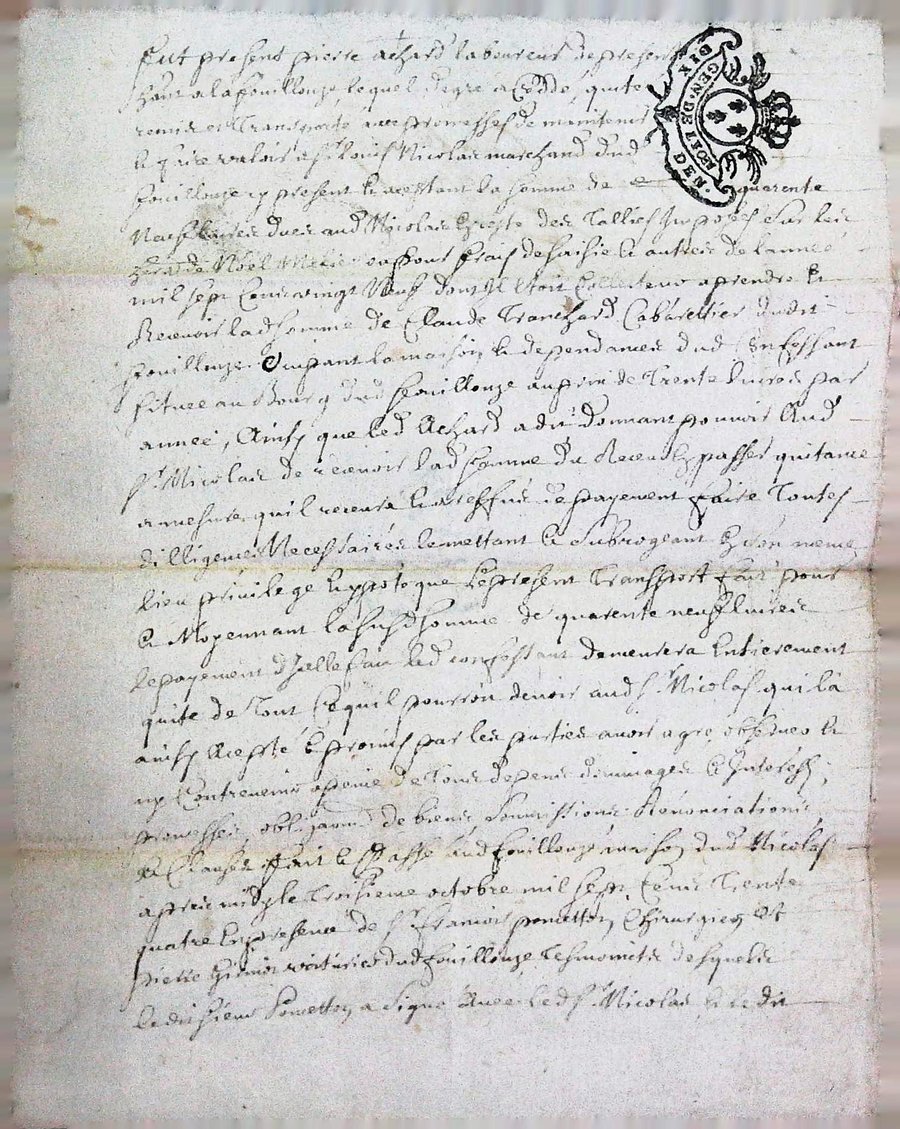 Fut present pierre achard laboureur de present
hant a la fouillouze lequel degré a Cedde, quite
remis et Transporté avec promesses de maintenir
le faire valoir a sr. louis Nicolas marchand dud
fouillouze cy present & aceptant la somme de quarente
Neuf livres dues aud Nicolas de Tallies Imposés Sur les
de Noel frais de saisie & autres de lannée
mil sept Cent vingt Neuf dont Il etoit Collecteur aprendre &
Recevoir lad somme de Claude Tranchard Cabarettier dudit
fouillouze Ocupant la maison & dependances dud Confessant
situee au Bourg dud fouillouze au prix de Trente livres par
année, Ainsy que led Achard a dit donnant pouvoir Aud
sr. Nicolas de recevoir lad somme du Recu En passer quitance
a mesure quil recevra & a reffus de payement faire Toutes
dilligences Necessaires le mettant & Subrogeant En son meme
lieu privilege & ypoteque le present Transport fait pour
& Moyennant la susd somme de quarente neuf livres
le payement dicelle fait led confessant demeurera Entierement
quite de Tout Ce quil pourroit devoir aud sr. Nicolas qui la
ainsy Accepté & promis par les parties avoir agré observer &
ny Contrevenir apeine de Tous depens dommages & Interests
promesses oblig de biens Soumissions Renonciations
& Clauses ffait & Passé aud fouillouze maison dud Nicolas
apres midy le Troisieme octobre mil sept Cent Trente
quatre En presence de sr. francois pometton Chirurgien Et
pierre voiturier dud fouillouze Tesmoins desquels
ledit sieur Pometton a Signé Avec led sr. Nicolas & ledit
GEN. DE LYON
DEN.